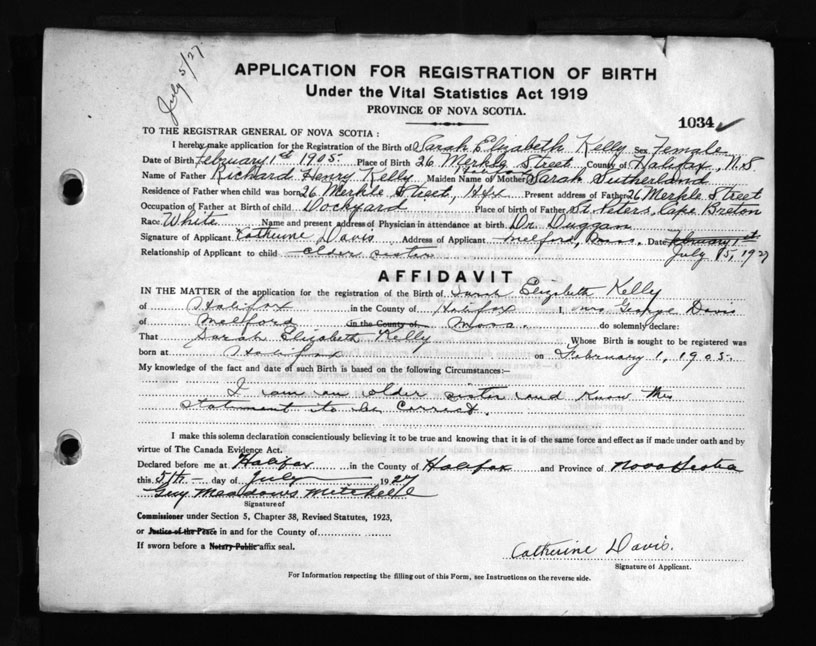 July 5/27
APPLICATION FOR REGISTRATION OF BIRTH
Under the Vital Statistics Act 1919
PROVINCE OF NOVA SCOTIA.
1034
TO THE REGISTRAR GENERAL OF NOVA SCOTIA :
I hereby make application for the Registration of the Birth of Sarah Elizabeth Kelly Sex Female
Date of Birth February 1st 1905. Place of Birth 26 Merkle Street County of Halifax, N.S
Name of Father Richard Henry Kelly Maiden Name of Mother Sarah Sutherland
Residence of Father when child was born 26 Merkle Street, Hfx Present address of Father 26 Merkle Street
Occupation of Father at Birth of child Dockyard Place of birth of Father St. Peters, Cape Breton
Race White Name and present address of Physician in attendance at birth Dr. Duggan
Signature of Applicant Catherine Davis Address of Applicant Melford, Mass. Date February 1st
July 5, 1927
Relationship of Applicant to child elder sister
AFFIDAVIT
IN THE MATTER of the application for the registration of the Birth of Sarah Elizabeth Kelly
of Halifax in the County of Halifax I Mrs George Davis
of Melford in the County of Mass. do solemnly declare:
That Sarah Elizabeth Kelly Whose Birth is sought to be registered was
born at Halifax on February 1, 1905.
My knowledge of the fact and date of such Birth is based on the following Circumstances:—
I am an older sister and know this
statement to be correct.
I make this solemn declaration conscientiously believing it to be true and knowing that it is of the same force and effect as if made under oath and by
virtue of The Canada Evidence Act.
Declared before me at Halifax in the County of Halifax and Province of Nova Scotia
this 5th day of July 1927
Guy Meadows Mitchell
Signature of
Commissioner under Section 5, Chapter 38, Revised Statutes, 1923,
or Justice of the Peace in and for the County of
If sworn before a Notary Public affix seal.
Catherine Davis.
Signature of Applicant.
For Information respecting the filling out of this Form, see Instructions on the reverse side.